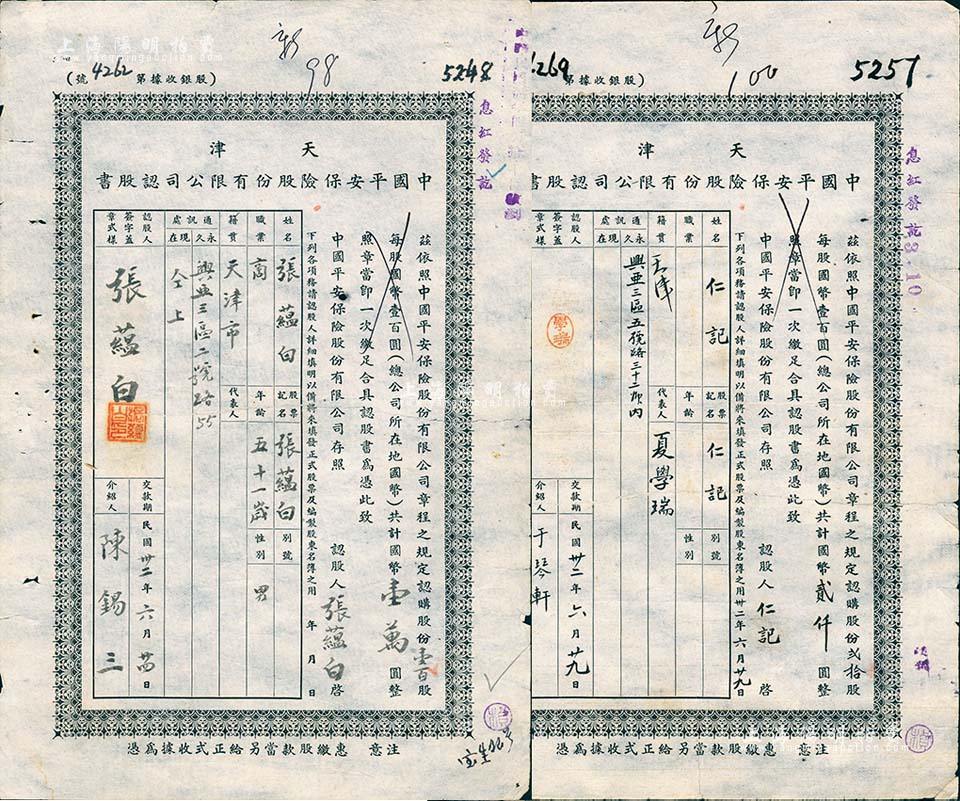 上海陽明拍賣
www.yangmingauction.com
(股銀收據第4262號)
新
98
5248
息紅發訖
天津
中國平安保險股份有限公司認股書
茲依照中國平安保險股份有限公司章程之規定認購股份壹百股
每股國幣壹百圓(總公司所在地國幣)共計國幣壹萬圓整
照章當即一次繳足合具認股書爲憑此致
中國平安保險股份有限公司存照
認股人 張蘊白 啓
年 月 日
下列各項務請認股人詳細填明以備將來填發正式股票及編製股東名簿之用
姓名 張蘊白 股票記名 張蘊白 別號
職業 商 年齡 五十一歲 性別 男
籍貫 天津市 代表人
通訊處 永久 興亞三區二號路55
現在 仝上
認股人簽字蓋章式樣 張蘊白
交款期 民國卅二年六月廿四日
介紹人 陳錫三
注意 惠繳股款當另給正式收據爲憑
(股銀收據第4269
新
100
5251
息紅發訖
3.10
天津
中國平安保險股份有限公司認股書
茲依照中國平安保險股份有限公司章程之規定認購股份貳拾股
每股國幣壹百圓(總公司所在地國幣)共計國幣貳仟圓整
照章當即一次繳足合具認股書爲憑此致
中國平安保險股份有限公司存照
認股人 仁記 啓
卅二年六月廿九日
下列各項務請認股人詳細填明以備將來填發正式股票及編製股東名簿之用
姓名 仁記 股票記名 仁記 別號
職業 年齡 性別
籍貫 天津 代表人 夏學瑞
通訊處 永久 興亞三區五號路三十二號內
現在
認股人簽字蓋章式樣
學瑞
交款期 民國卅二年六月廿九日
介紹人 于琴軒
注意 惠繳股款當另給正式收據爲憑